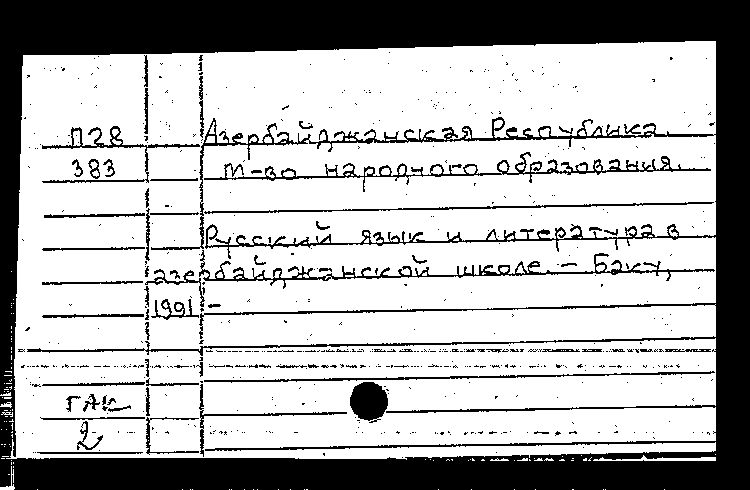 П28 Азербайджанская Республика.
383 М-во народного образования.
Русский язык и литература в
азербайджанской школе. – Баку,
1991 –
ГАК
2